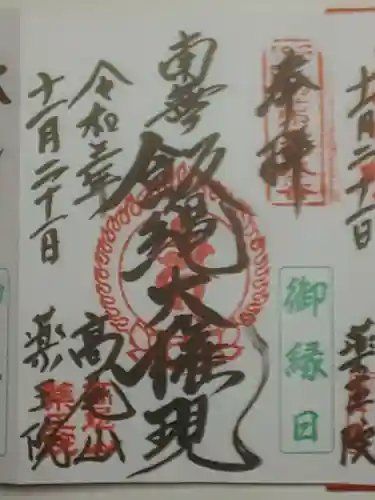 奉拝
御縁日
南無
飯縄大権現
令和二年
高尾山
十一月二十一日
薬王院
十一月二十一日
薬王院